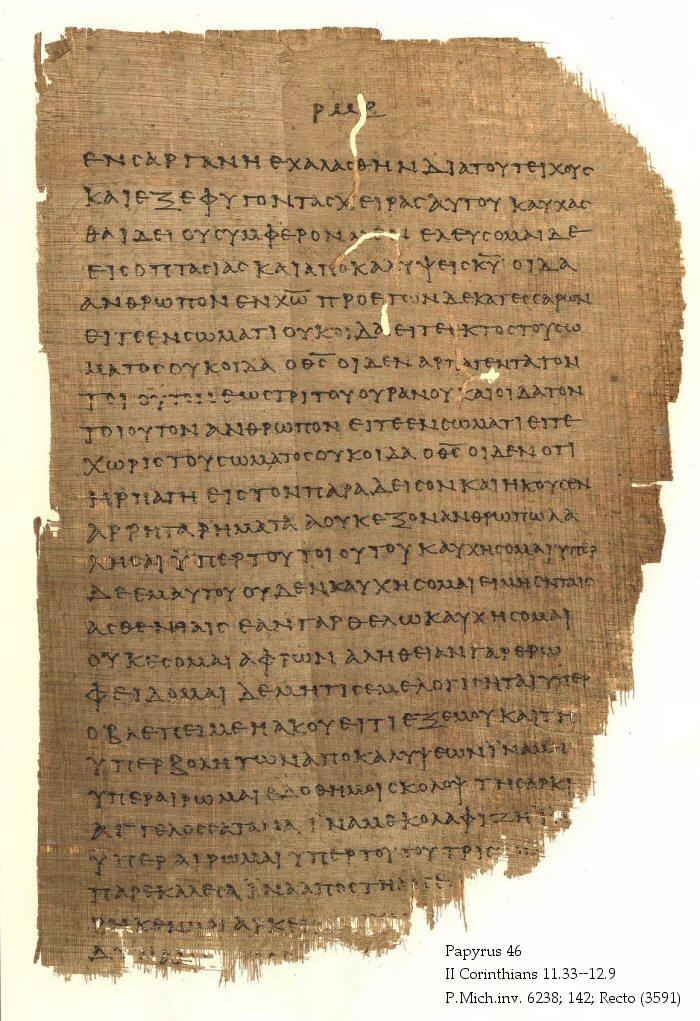 ΕΝ ΣΑΡΓΑΝΗ ΕΧΑΛΑΣΘΗΝ ΔΙΑ ΤΟΥ ΤΕΙΧΟΥΣ
ΚΑΙ ΕΞΕΦΥΓΟΝ ΤΑΣ ΧΕΙΡΑΣ ΑΥΤΟΥ ΚΑΥΧΑΣ
ΘΑΙ ΔΕΙ ΟΥ ΣΥΜΦΕΡΟΝ ΕΛΕΥΣΟΜΑΙ ΔΕ
ΕΙΣ ΟΠΤΑΣΙΑΣ ΚΑΙ ΑΠΟΚΑΛΥΨΕΙΣ Κ̅Υ̅ ΟΙΔΑ
ΑΝΘΡΩΠΟΝ ΕΝ Χ̅Ω̅ ΠΡΟ ΕΤΩΝ ΔΕΚΑΤΕΣΣΑΡΩΝ
ΕΙΤΕ ΕΝ ΣΩΜΑΤΙ ΟΥΚ ΟΙΔΑ ΕΙΤΕ ΕΚΤΟΣ ΤΟΥ ΣΩ
ΜΑΤΟΣ ΟΥΚ ΟΙΔΑ Ο Θ̅Σ̅ ΟΙΔΕΝ ΑΡΠΑΓΕΝΤΑ ΤΟΝ
ΕΩΣ ΤΡΙΤΟΥ ΟΥΡΑΝΟΥ ΚΑΙ ΟΙΔΑ ΤΟΝ
ΤΟΙΟΥΤΟΝ ΑΝΘΡΩΠΟΝ ΕΙΤΕ ΕΝ ΣΩΜΑΤΙ ΕΙΤΕ
ΧΩΡΙΣ ΤΟΥ ΣΩΜΑΤΟΣ ΟΥΚ ΟΙΔΑ Ο Θ̅Σ̅ ΟΙΔΕΝ ΟΤΙ
ΗΡΠΑΓΗ ΕΙΣ ΤΟΝ ΠΑΡΑΔΕΙΣΟΝ ΚΑΙ ΗΚΟΥΣΕΝ
ΑΡΡΗΤΑ ΡΗΜΑΤΑ Α ΟΥΚ ΕΞΟΝ ΑΝΘΡΩΠΩ ΛΑ
ΛΗΣΑΙ ΥΠΕΡ ΤΟΥ ΤΟΙΟΥΤΟΥ ΚΑΥΧΗΣΟΜΑΙ ΥΠΕΡ
ΔΕ ΕΜΑΥΤΟΥ ΟΥΔΕΝ ΚΑΥΧΗΣΟΜΑΙ ΕΙ ΜΗ ΕΝ ΤΑΙΣ
ΑΣΘΕΝΗΑΙΣ ΕΑΝ ΓΑΡ ΘΕΛΩ ΚΑΥΧΗΣΟΜΑΙ
ΟΥΚ ΕΣΟΜΑΙ ΑΦΡΩΝ ΑΛΗΘΕΙΑΝ ΓΑΡ ΕΡΩ
ΦΕΙΔΟΜΑΙ ΔΕ ΜΗ ΤΙΣ ΕΜΕ ΛΟΓΙΣΗΤΑΙ ΥΠΕΡ
Ο ΒΛΕΠΕΙ ΜΕ Η ΑΚΟΥΕΙ ΤΙ ΕΞ ΕΜΟΥ ΚΑΙ ΤΗ
ΥΠΕΡΒΟΛΗ ΤΩΝ ΑΠΟΚΑΛΥΨΕΩΝ ΙΝΑ ΜΗ
ΥΠΕΡΑΙΡΩΜΑΙ ΕΔΟΘΗ ΜΟΙ ΣΚΟΛΟΨ ΤΗ ΣΑΡΚΙ
ΑΓΓΕΛΟΣ ΣΑΤΑΝΑ ΙΝΑ ΜΕ ΚΟΛΑΦΙΖΗ
ΥΠΕΡΑΙΡΩΜΑΙ ΥΠΕΡ ΤΟΥΤΟΥ ΤΡΙΣ
ΠΑΡΕΚΑΛΕΣΑ ΙΝΑ ΑΠΟΣΤΗ
Papyrus 46
II Corinthians 11.33--12.9
P.Mich.inv. 6238; 142; Recto (3591)